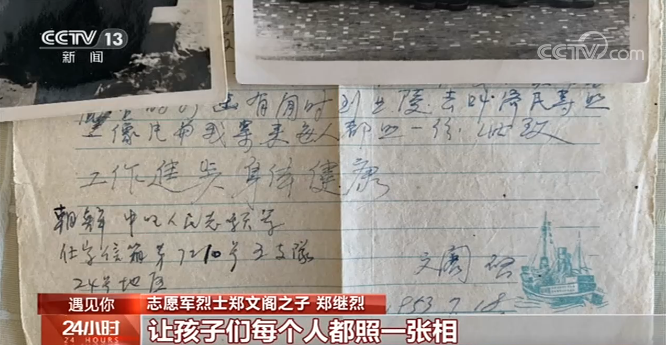 CCTV 13
新闻
CCTV.com
有闲时到
像片寄我家来每人都照一份.此致
工作进步身体健康
朝鲜中国人民志愿军
信箱第7210号五支队
24号地区
文阁
1953.7.18
遇见你
志愿军烈士郑文阁之子 郑继烈
24小时
24 HOURS
让孩子们每个人都照一张相